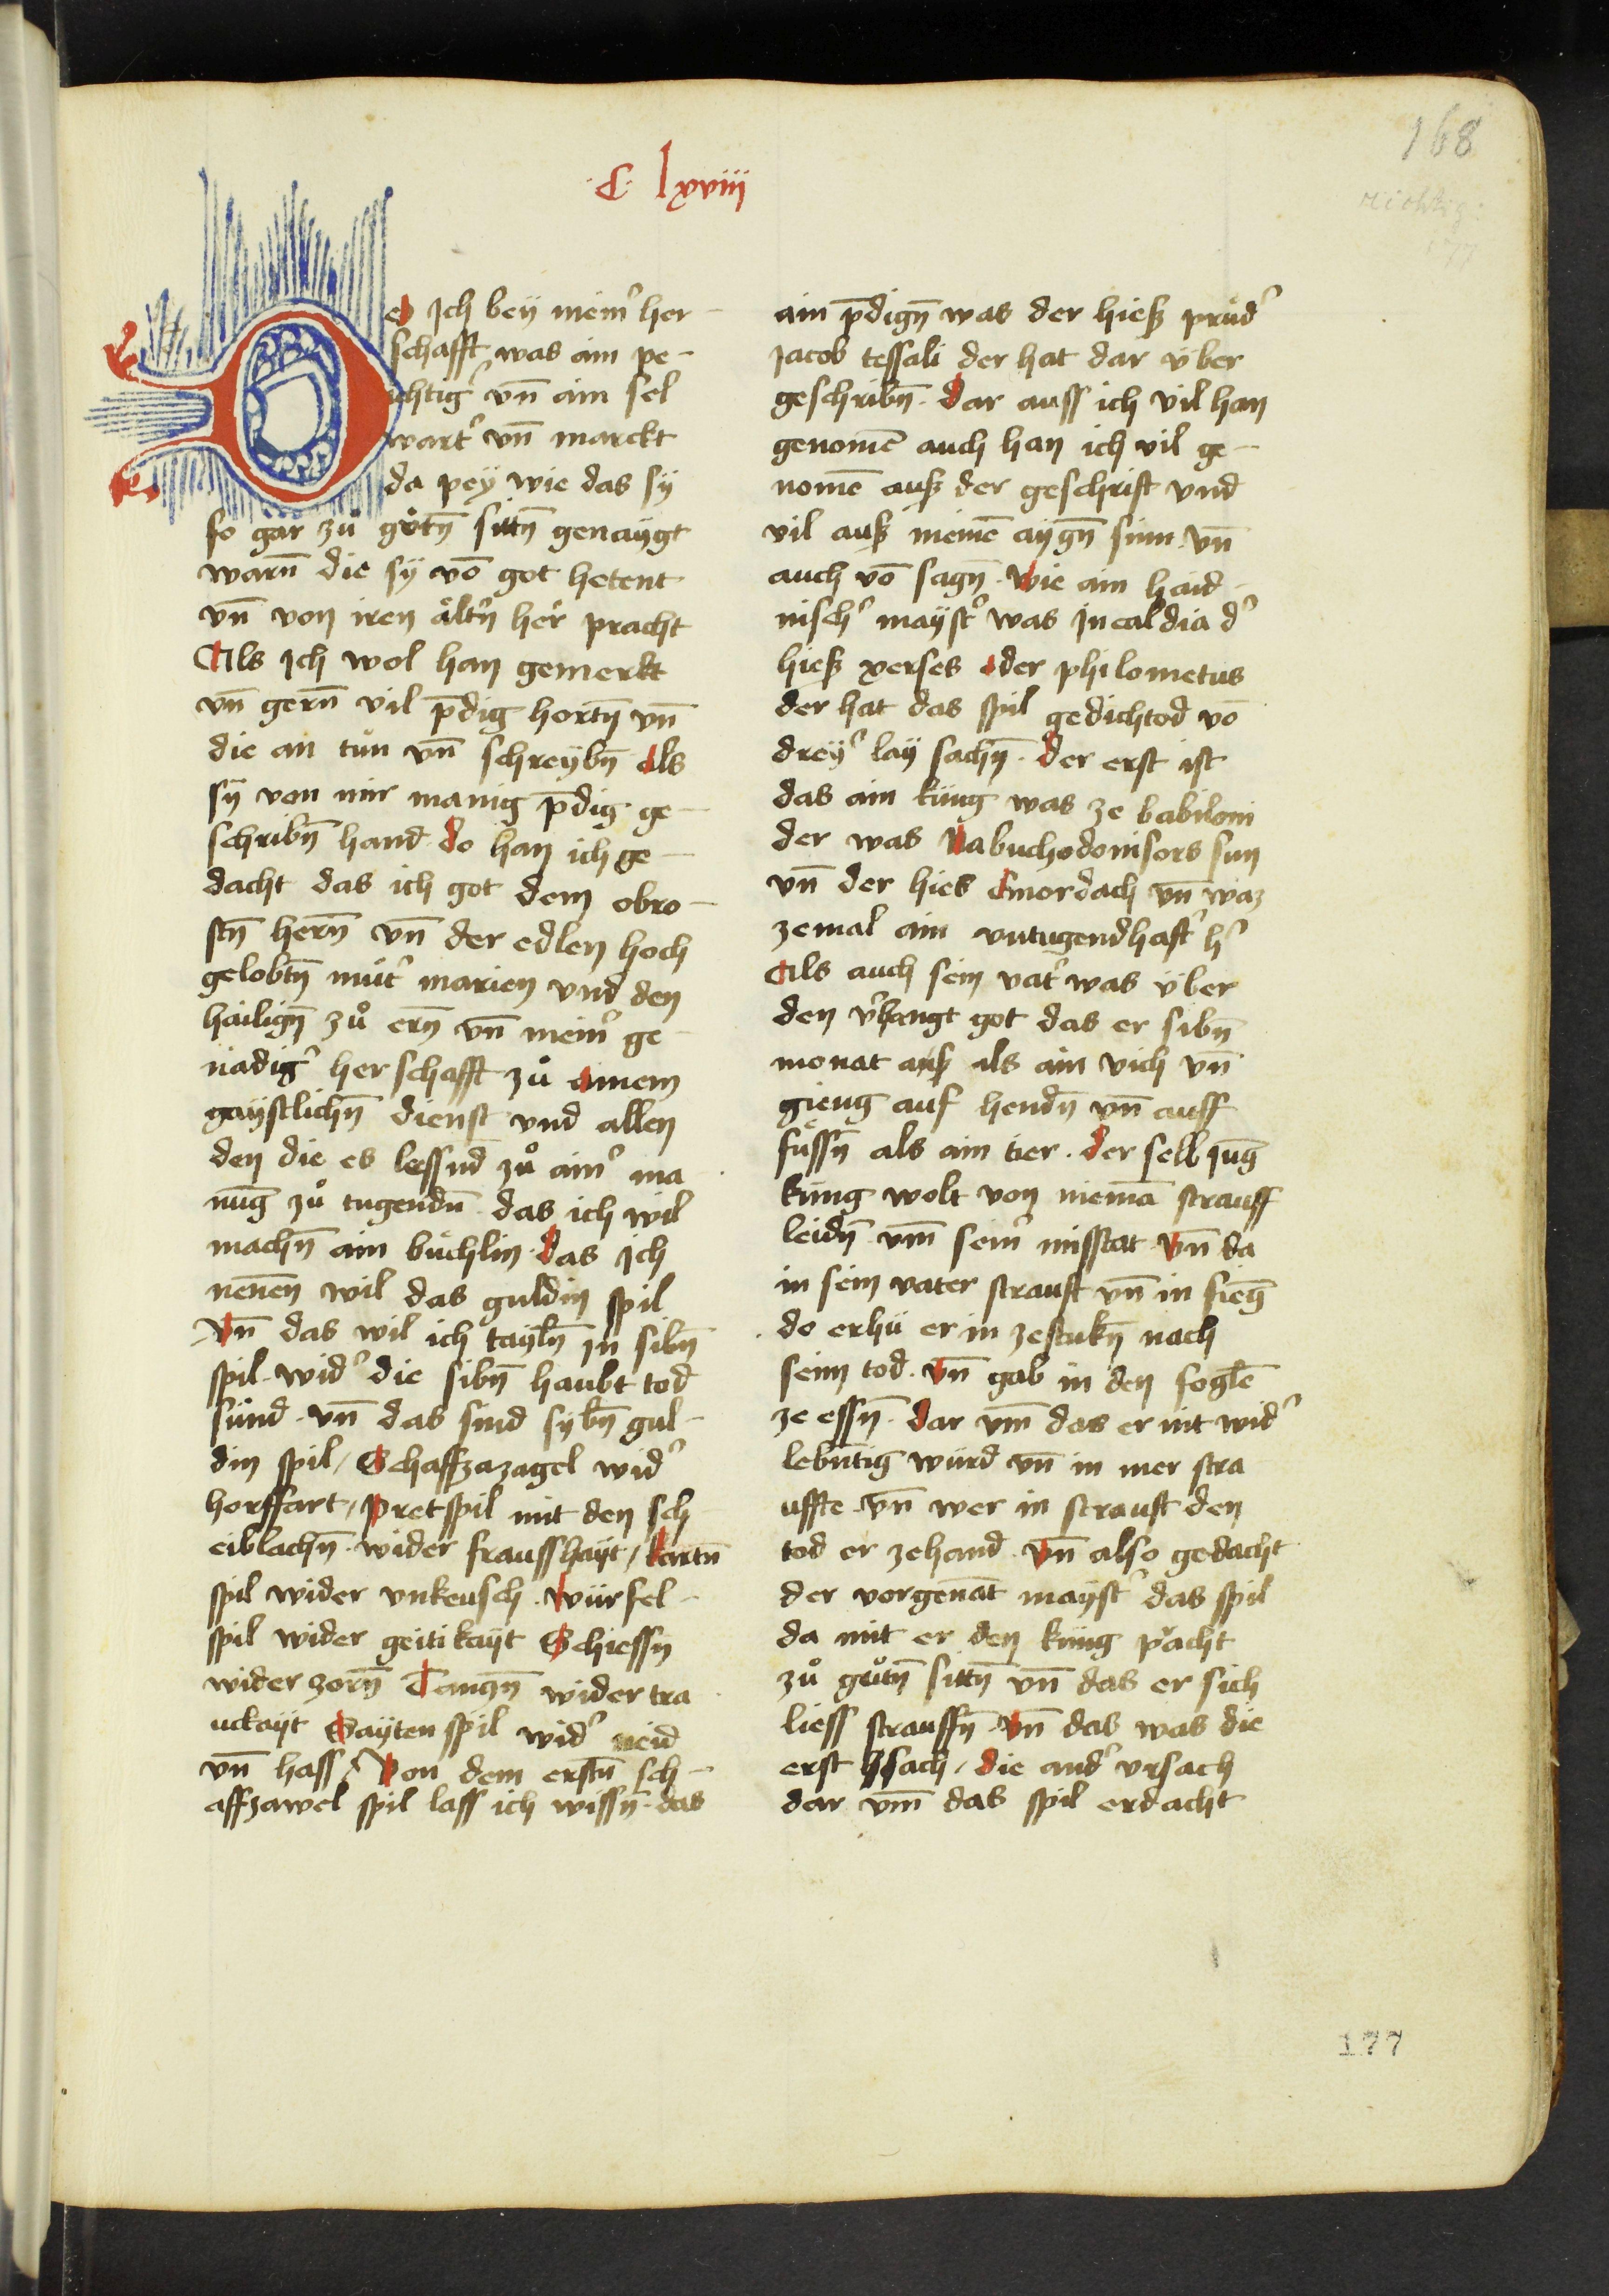 168
richtig:
177
·C· lxviii
Do ich bey meinˀ her-
schafft was ain pe-
ichtigˀ vn̄ ain sel
wartˀ vn̄ marckt
da pey wie das sy
so gar zů gůtn̄ sittn̄ genaygt
warn̄ die sy vō got hetent
vn̄ von iren åltˀn her pracht
Als Ich wol han gemerkt
vn̄ gern̄ vil p̄dig hortn̄ vn̄
die an tůn vn̄ schreybn̄ Als
sy von mir manig p̄dig ge-
schribn̄ hand do han ich ge-
dacht das ich got dem obro-
stn̄ hern̄ vn̄ der edlen hoch
gelobtn̄ můtˀ marien vnd den
hailign̄ zů ern̄ vn̄ meinˀ ge-
nädigˀ herschafft zů ainem
gaystlichn̄ dienst vnd allen
den die es lessn̄d zů ainˀ ma
nūg zů tugendn̄ das ich wil
machn̄ ain bůchlin das ich
nenēn wil das guldin spil
Vn̄ das wil ich tayln̄ in sibn̄
spil widˀ die sibn̄ haubt tod
sünd · vn̄ das sind sybn̄ gul-
din spil / Schaffzazagel widˀ
horffart / pretspil mit den sch
eiblachn̄ wider frausshayt / kartn̄
spil wider vnkeusch · Würfel-
spil wider geitikayt Schiessn
wider zorn̄ Tanczn̄ wider tra
uckayt Sayten spil widˀ neid
vn̄ hass / Von dem erstn̄ sch-
affzawel spil lass ich wissn̄ · das
ain p̄dign̄ was der hieß průdˀ
Jacob tessali der hat dar über
geschribn̄ · Dar auss ich vil han
genomē auch han ich vil ge-
nomē auß der geschrift vnd
vil auß meinē aygn̄ sinn vn̄
auch vō sagn̄ · Wie ain haid-
nischˀ maystˀ was In caldia dˀ
hieß xerses oder philometus
der hat das spil gedichtod vō
dreyˀ lay sachn̄ · Der erst ist
das ain küng was ze babiloni
der was Nabuchodonisors sun
vn̄ der hies Emordach vn̄ waz
zemal ain vntugendhaftˀ hˀ
Als auch sein vatˀ was über
den vˀhangt got das er sibn̄
monat auß als ain vich vn̄
gieng auf hendn̄ vn̄ auff
füssn̄ als ain tier · der selb jūg
küng wolt von niemā strauff
leidn̄ vm̄ seinˀ misstat · Vn̄ da
in sein vater strauft vn̄ in fieng
do erhü er in zestukn̄ nach
seim tod · vn̄ gab in den foglē
ze essn̄ · Dar vm̄ das er nit widˀ
lebn̄tig würd vn̄ in mer stra
uffte · vn̄ wer in strauft den
tod er zehand · Vn̄ also gedacht
der vorgenāt maystˀ das spil
da mit er den küng pracht
zů gůtn̄ sittn̄ vn̄ das er sich
liess strauffn̄ · Vn̄ das was die
erst vrsach / die andˀ vrsach
dar vm̄ das spil erdacht
177